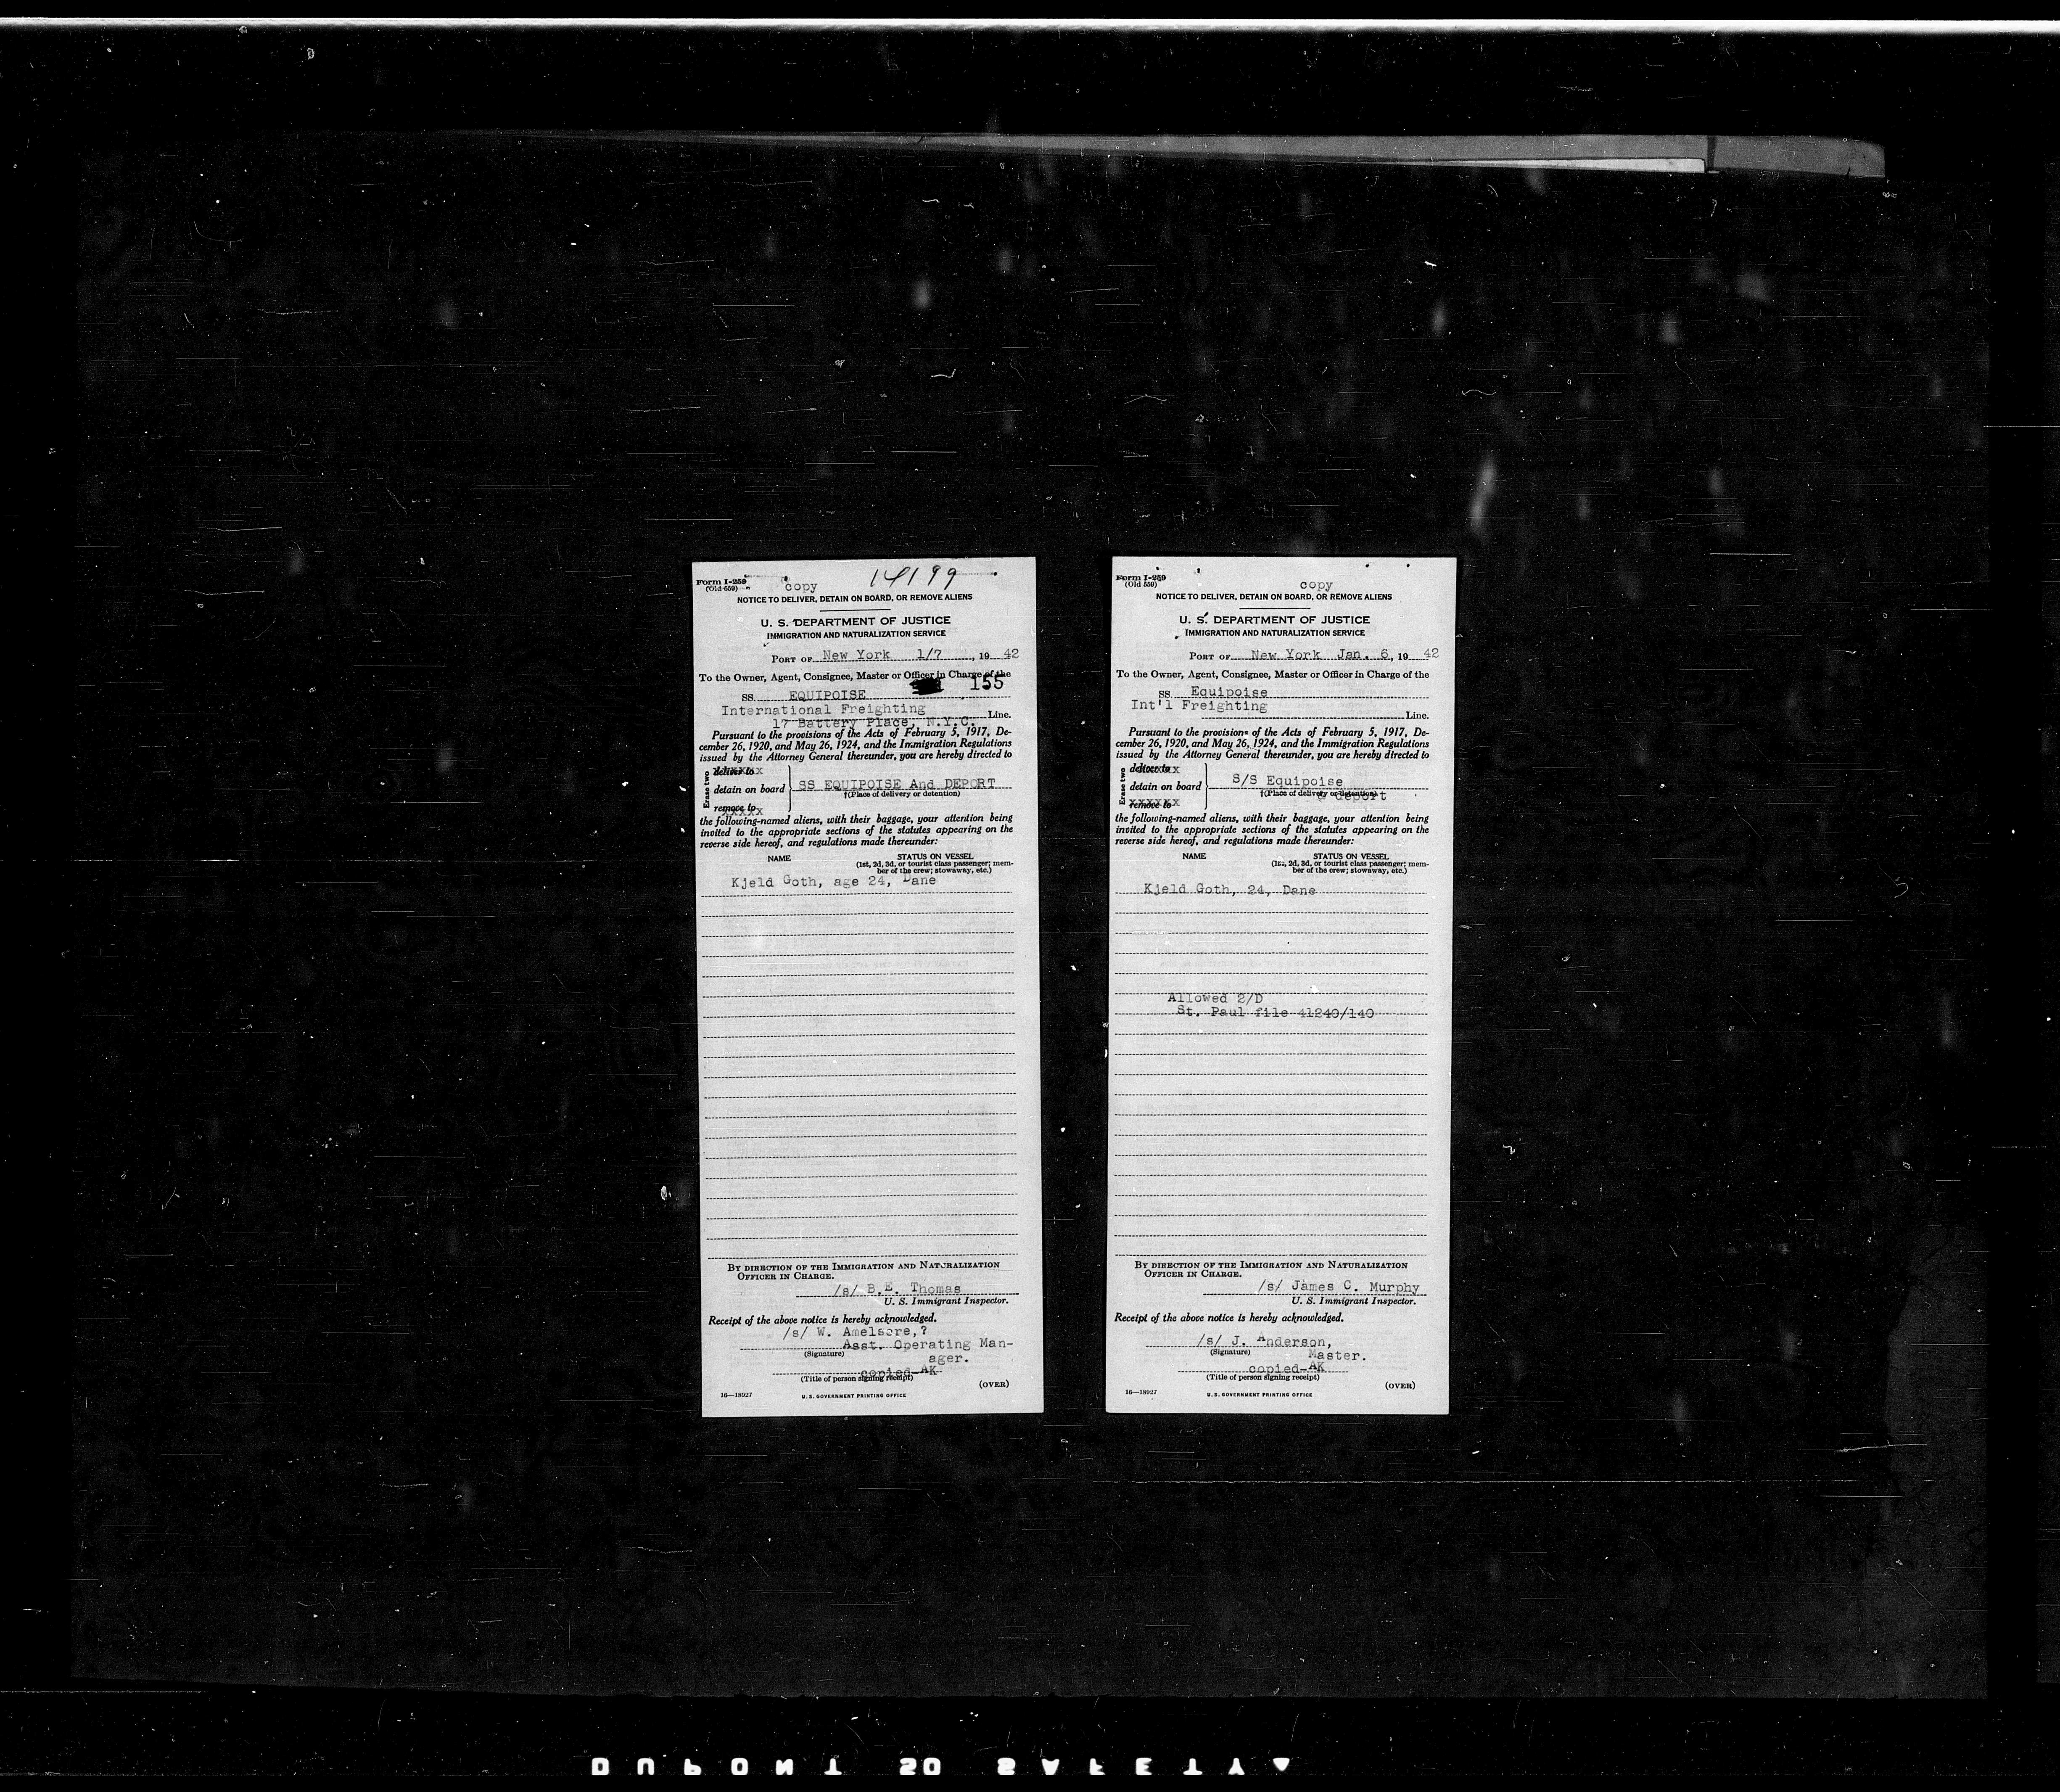 Form I-259
(Old 659)
copy
14199
NOTICE TO DELIVER, DETAIN ON BOARD, OR REMOVE ALIENS
U. S. DEPARTMENT OF JUSTICE
IMMIGRATION AND NATURALIZATION SERVICE
PORT OF New York 1/7, 19 42
To the Owner, Agent, Consignee, Master or Officer in Charge of the
155
SS. EQUIPOISE
International Freighting
17 Battery Place, N.Y.C. Line.
Pursuant to the provisions of the Acts of February 5, 1917, De-
cember 26, 1920, and May 26, 1924, and the Immigration Regulations
issued by the Attorney General thereunder, you are hereby directed to
Erase two
deliver to
detain on board
remove to
SS EQUIPOISE And DEPORT
†(Place of delivery or detention)
the following-named aliens, with their baggage, your attention being
invited to the appropriate sections of the statutes appearing on the
reverse side hereof, and regulations made thereunder:
NAME STATUS ON VESSEL
(1st, 2d, 3d, or tourist class passenger; mem-
ber of the crew; stowaway, etc.)
Kjeld Goth, age 24, Dane
BY DIRECTION OF THE IMMIGRATION AND NATURALIZATION
OFFICER IN CHARGE.
/s/ B.E. Thomas
U. S. Immigrant Inspector.
Receipt of the above notice is hereby acknowledged.
/s/ W. Amelsore,?
Asst. Operating Man-
(Signature)
ager.
copied-AK
(Title of person signing receipt)
(OVER)
16—18927 U. S. GOVERNMENT PRINTING OFFICE
Form I-259
(Old 559)
copy
NOTICE TO DELIVER, DETAIN ON BOARD, OR REMOVE ALIENS
U. S. DEPARTMENT OF JUSTICE
IMMIGRATION AND NATURALIZATION SERVICE
PORT OF New York Jan. 6, 19 42
To the Owner, Agent, Consignee, Master or Officer in Charge of the
SS Equipoise
Int'l Freighting
Line.
Pursuant to the provisions of the Acts of February 5, 1917, De-
cember 26, 1920, and May 26, 1924, and the Immigration Regulations
issued by the Attorney General thereunder, you are hereby directed to
Erase two
deliver to
detain on board
remove to
S/S Equipoise
†(Place of delivery or detention)
& deport
the following-named aliens, with their baggage, your attention being
invited to the appropriate sections of the statutes appearing on the
reverse side hereof, and regulations made thereunder:
NAME STATUS ON VESSEL
(1st, 2d, 3d, or tourist class passenger; mem-
ber of the crew; stowaway, etc.)
Kjeld Goth, 24, Dane
Allowed 2/D
St. Paul file 41240/140
BY DIRECTION OF THE IMMIGRATION AND NATURALIZATION
OFFICER IN CHARGE.
/s/ James C. Murphy
U. S. Immigrant Inspector.
Receipt of the above notice is hereby acknowledged.
/s/ J. Anderson,
(Signature)
Master.
copied-AK
(Title of person signing receipt)
(OVER)
16—18927 U. S. GOVERNMENT PRINTING OFFICE
DUPONT SAFETY